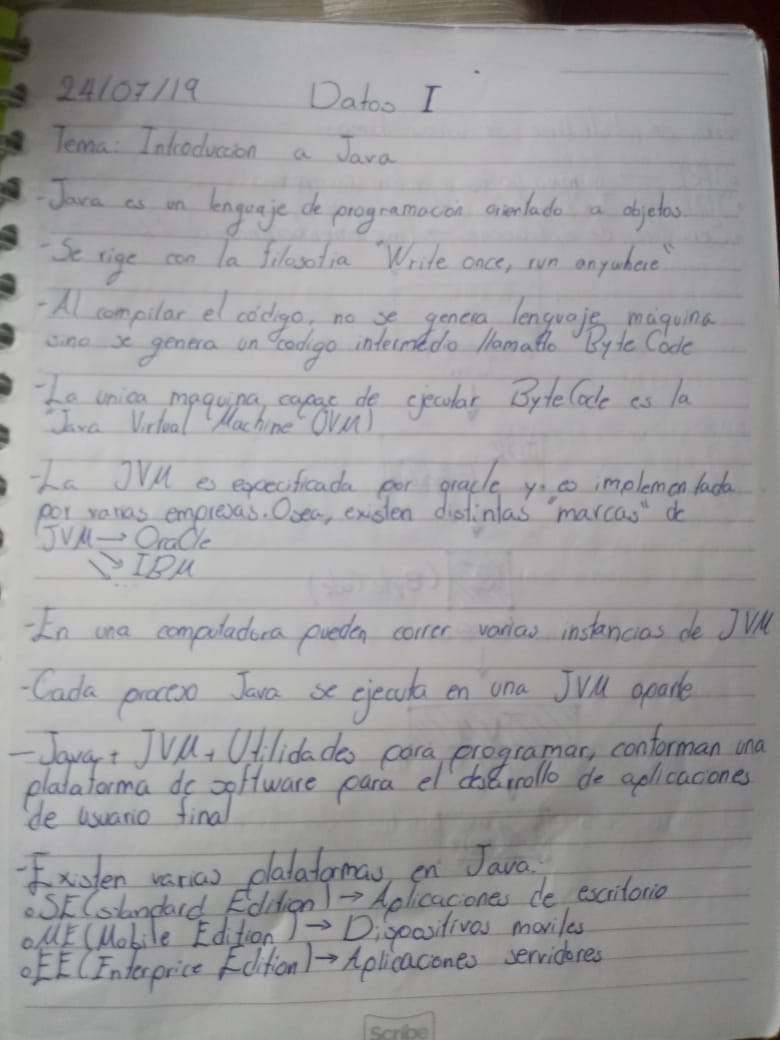 24/07/19 Datos I
Tema: Introducción a Java
-Java es un lenguaje de programación orientado a objetos.
-Se rige con la filosofia "Write once, run anywhere"
-Al compilar el código, no se genera lenguaje máquina
sino se genera un codigo intermedio llamatlo Byte Code
-La unica maquina capaz de ejecutar ByteCode es la
"Java Virtual Machine" (JVM)
-La JVM es especificada por oracle y es implementada
por varias empresas. Osea, existen distintas "marcas" de
JVM → Oracle
→ IBM
-En una computadora pueden correr varias instancias de JVM
-Cada proceso Java se ejecuta en una JVM aparte
-Java + JVM + Utilidades para programar, conforman una
plataforma de software para el desarrollo de aplicaciones
de usuario final
-Existen varias plataformas en Java:
•SE(standard Edition) → Aplicaciones de escritorio
•ME(Mobile Edition) → Dispositivos moviles
•EE(Enterprice Edition) → Aplicacones servidores
Scribe